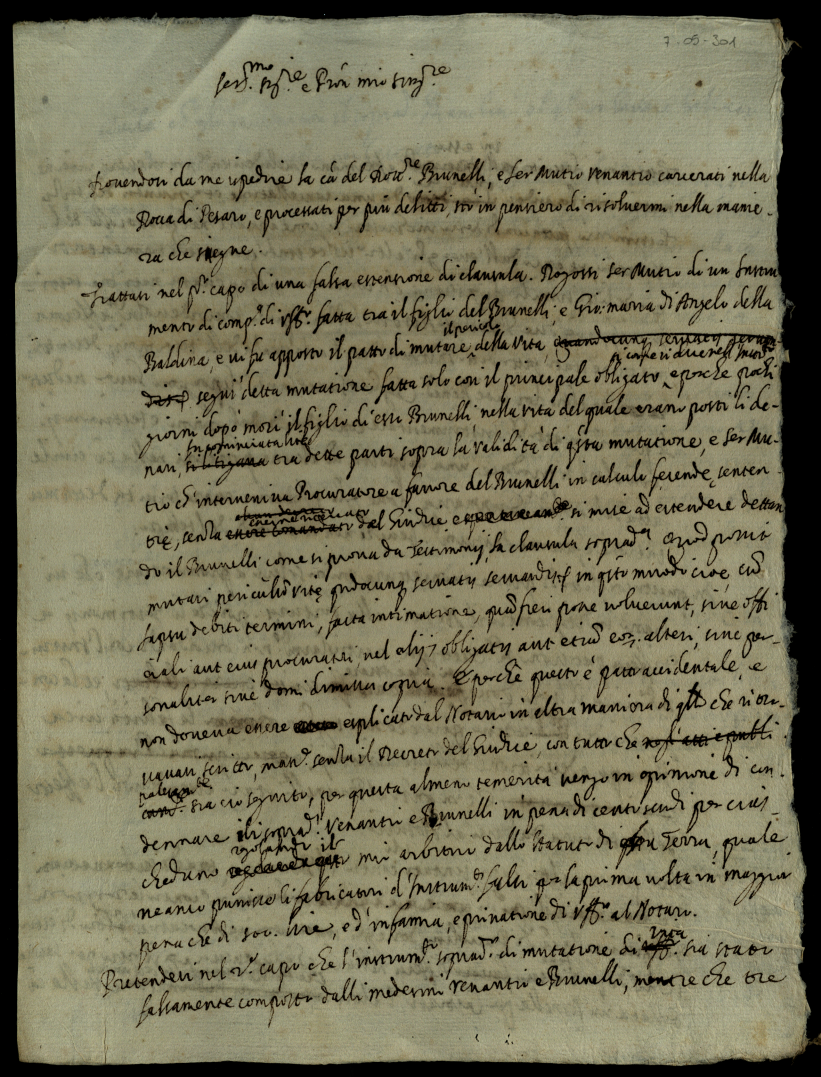 7-05-301
Ser.mo Sig.re e Pron mio Sing.re
Trovendosi da me ispedire la câ del Dott.re Brunelli, e Ser Mutio Venantio carcerati nella
Rocca di Pesaro, e processati per più delitti stò in pensiero di risolvermi nella manie-
ra che siegue.
Trattasi nel p.o capo di una falsa estensione di clausula. Rogossi Ser Mutio di un Instru
mento di comp.a di uff.o fatta tra il figlio del Brunelli, e Gio: maria di Angelo della
Baldina, e vi fu apposto il patto di mutare il pericolo della vita,
seguì detta mutatione fatta solo con il principale obligato, e perche pochi
giorni dopò morì il figlio di esso Brunelli nella vita del quale erano posti li de-
nari, fu tra dette parti sopra la validità di q.sta mutatione, e Ser Mu-
tio ch'interveniva Procuratore a favore del Brunelli in calculo ferende senten
tie, senza del Giudice si mise ad estendere dettan
do il Brunelli come si prova da Testimonij, la clausula soprad.a Quod possit
mutari periculũ vite in q.sto modo cioe cũ
lapsu debiti termini, facta intimatione, quod fieri posse voluerunt, sive offi
ciali aut eius procuratori, vel alijs obligatis aut etiã eor. alteri, sive per-
sonaliter sive domi dimissa copia. E perche questo è patto accidentale, e
non doveva essere esplicato dal Notario in altra maniera di q.llo che si tro-
vavasi scritto, mass.e senza il Decreto del Giudice, con tutto che
sia ciò seguito, per questa almeno temerità vengo in opinione di con
dennare li soprad.i Venantio e Brunelli in pena di cento scudi per cias-
cheduno regolando il mio arbitrio dallo statuto di Terra, quale
neanco punisce li fabricatori d'Instrum.ti falsi p la prima volta in maggior
pena che di 500. lire, e d'infamia, e privatione di uff.o al Notaro.
Pretendesi nel 2.o capo che l'instrum.to soprad.o di mutatione di vita sia stato
falsamente composto dalli medesimi Venantio e Brunelli, mentre che tre